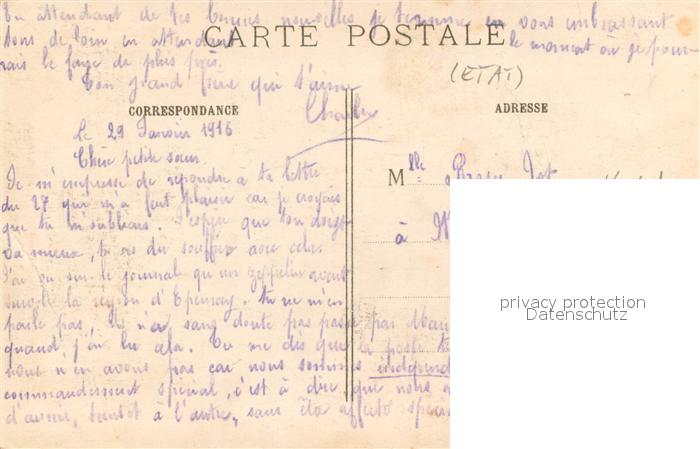 En attendant de tes bonnes nouvelles je termine en vous embrassant
tous de loin en attendant le moment où je pour-
rais le faire de plus près.
Ton grand frère qui t'aime
Charles
CARTE POSTALE
(ETAT)
CORRESPONDANCE
ADRESSE
Le 29 Janvier 1916
Chère petite sœur
Je m'empresse de repondre à ta lettre
du 27 qui m'a fait plaisir car je croyais
que tu m'oubliais. J'espère que ton doigt
va mieux, tu as du souffrir avec cela.
J'ai vu sur le journal qu'un zeppelin avait
survolé la région d'Epernay. Tu ne m'en
parle pas, il n'a sans doute pas passé par
quand j'ai lu cela. Tu me dis que la poste
nous n'en avons pas car nous sommes
commandement spécial, c'est à dire que nous
d'armée, tantôt à l'autre, sans être affecté
Mlle
à
privacy protection
Datenschutz